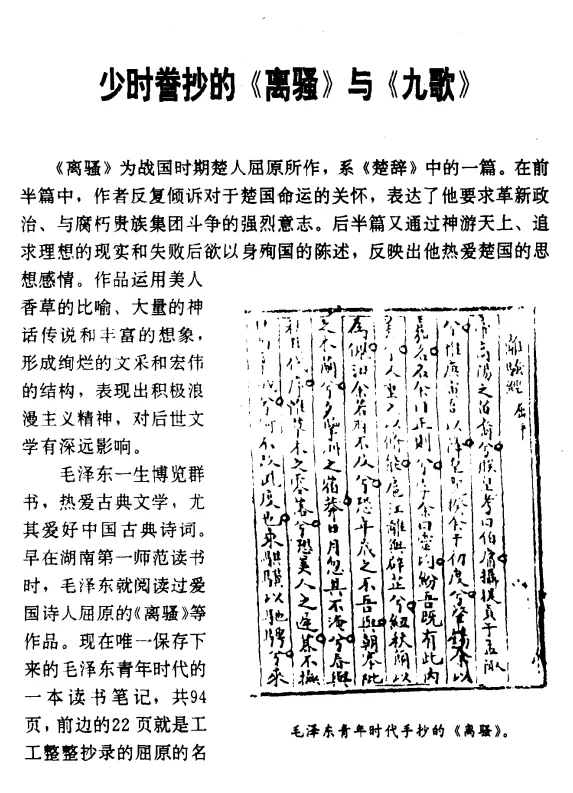 少时誊抄的《离骚》与《九歌》
《离骚》为战国时期楚人屈原所作，系《楚辞》中的一篇。在前
半篇中，作者反复倾诉对于楚国命运的关怀，表达了他要求革新政
治、与腐朽贵族集团斗争的强烈意志。后半篇又通过神游天上、追
求理想的现实和失败后欲以身殉国的陈述，反映出他热爱楚国的思
想感情。作品运用美人
香草的比喻、大量的神
话传说和丰富的想象，
形成绚烂的文采和宏伟
的结构，表现出积极浪
漫主义精神，对后世文
学有深远影响。
毛泽东一生博览群
书，热爱古典文学，尤
其爱好中国古典诗词。
早在湖南第一师范读书
时，毛泽东就阅读过爱
国诗人屈原的《离骚》等
作品。现在唯一保存下
来的毛泽东青年时代的
一本读书笔记，共94
页，前边的22页就是工
工整整抄录的屈原的名
離騷經 屈平
帝高陽之苗裔兮朕皇考曰伯庸攝提貞于孟陬
兮惟庚寅吾以降皇覽揆余于初度兮肇錫余以
嘉名名余曰正則兮字余曰靈均紛吾既有此內
美兮又重之以脩能扈江離與辟芷兮紉秋蘭以
為佩汩余若將不及兮恐年歲之不吾與朝搴阰
之木蘭兮夕攬州之宿莽日月忽其不淹兮春與
秋其代序惟草木之零落兮恐美人之遲暮不撫
兮何不改此度也乘騏驥以馳騁兮來
毛泽东青年时代手抄的《离骚》。